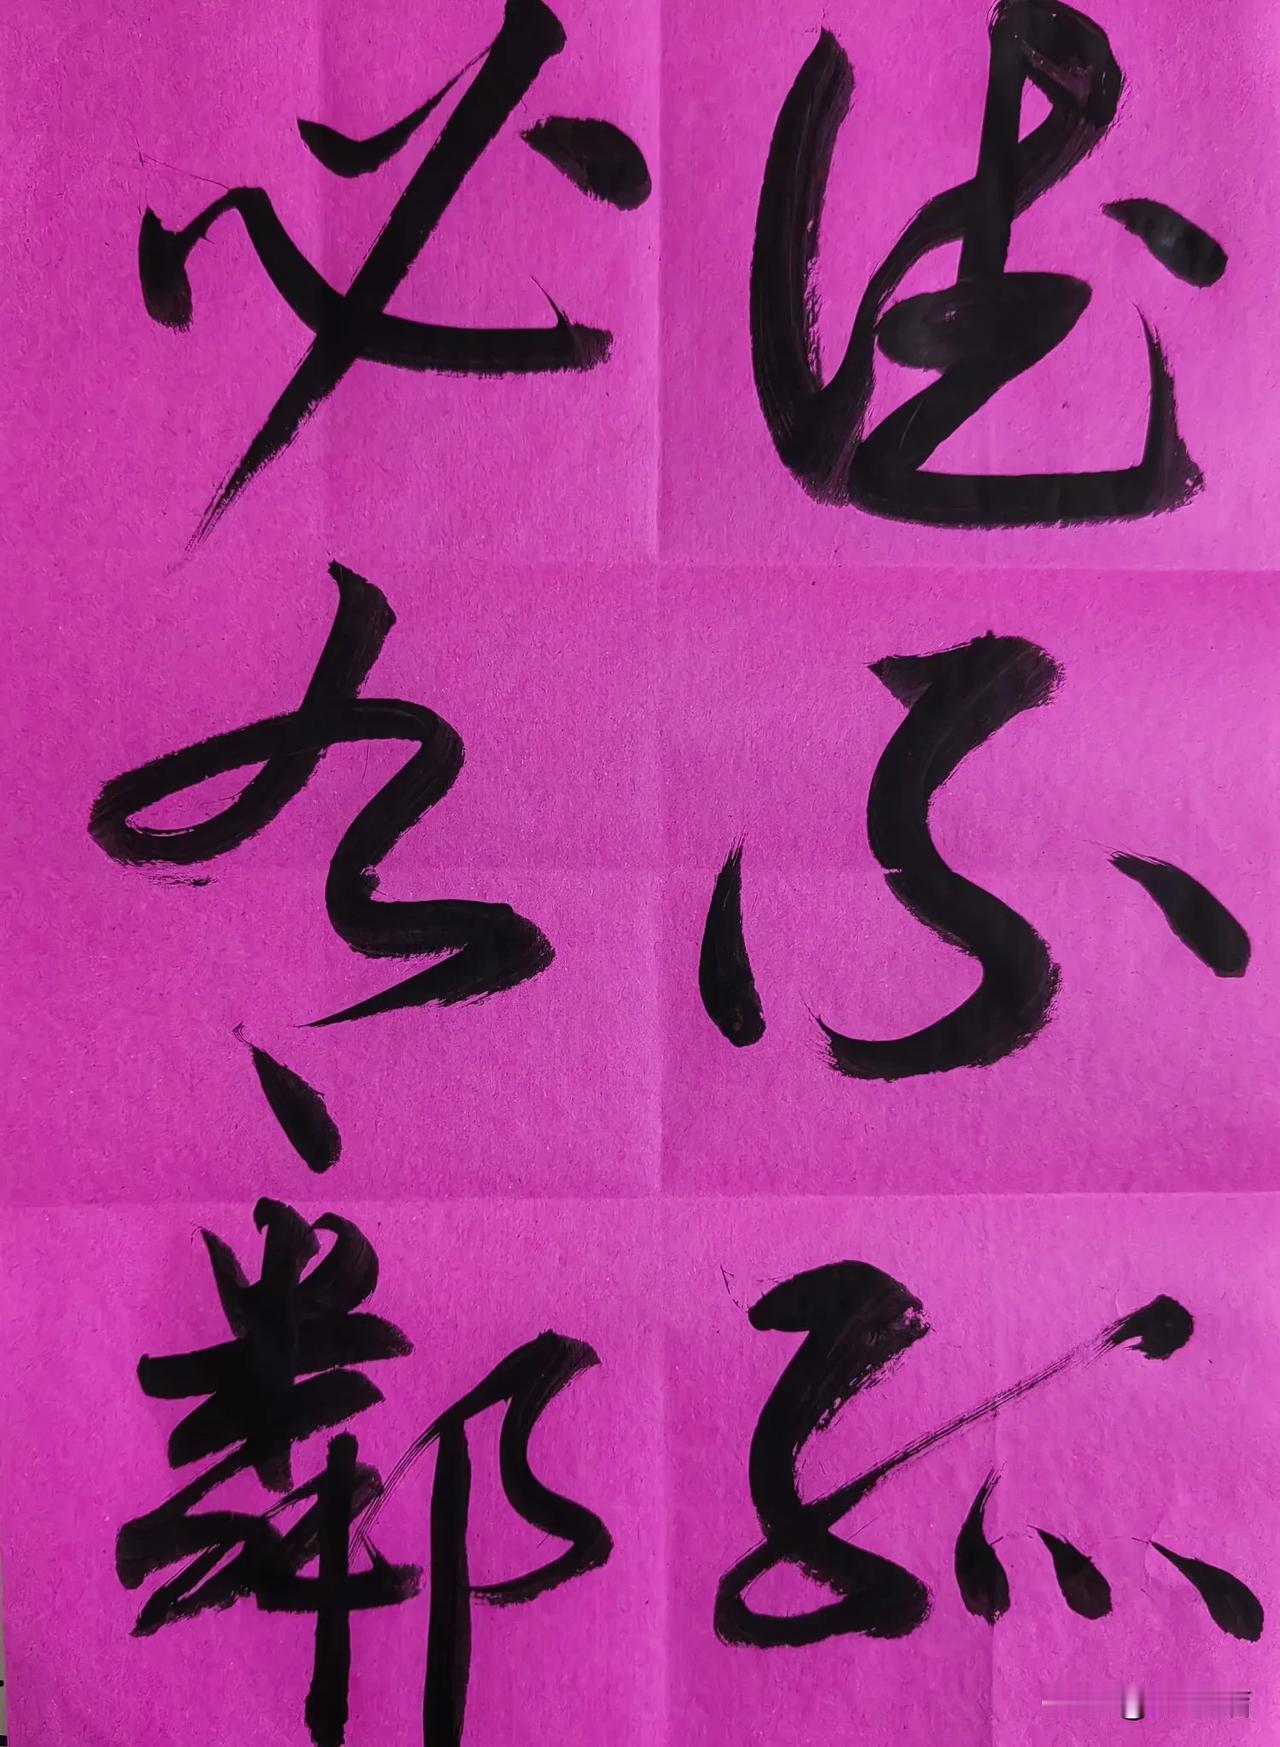 德不孤
必有鄰